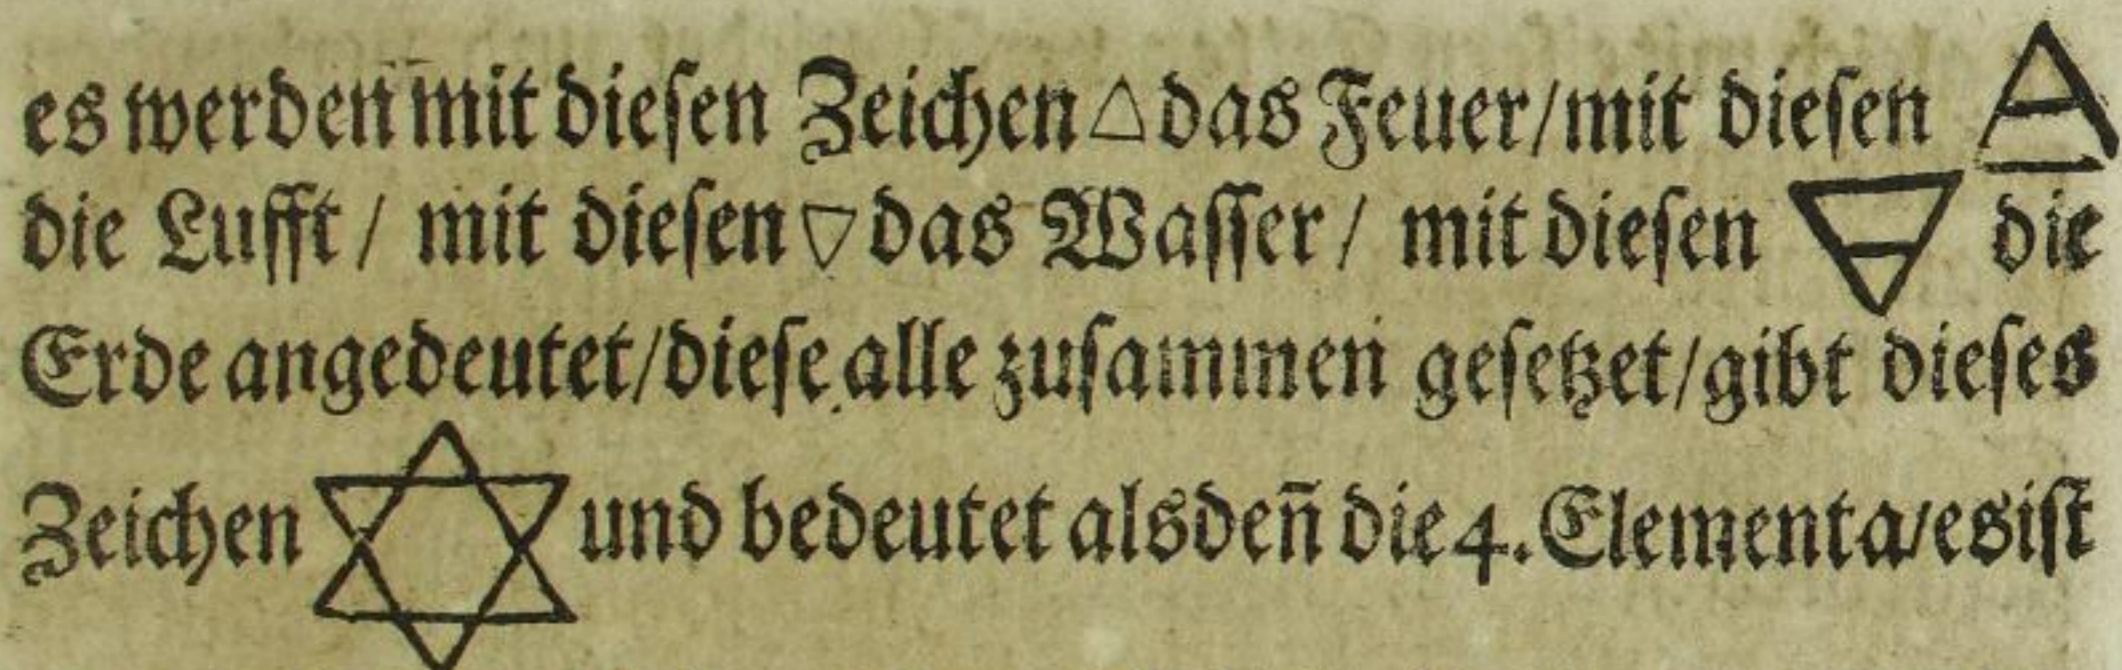 es werden mit dieſen Zeichen △ das Feuer/mit dieſen 🜁
die Lufft / mit dieſen ▽ das Waſſer / mit dieſen 🜃 die
Erde angedeutet/dieſe alle zuſammen geſetzet/gibt dieſes
Zeichen ✡ und bedeutet alsdeñ die 4. Elementa/es iſt